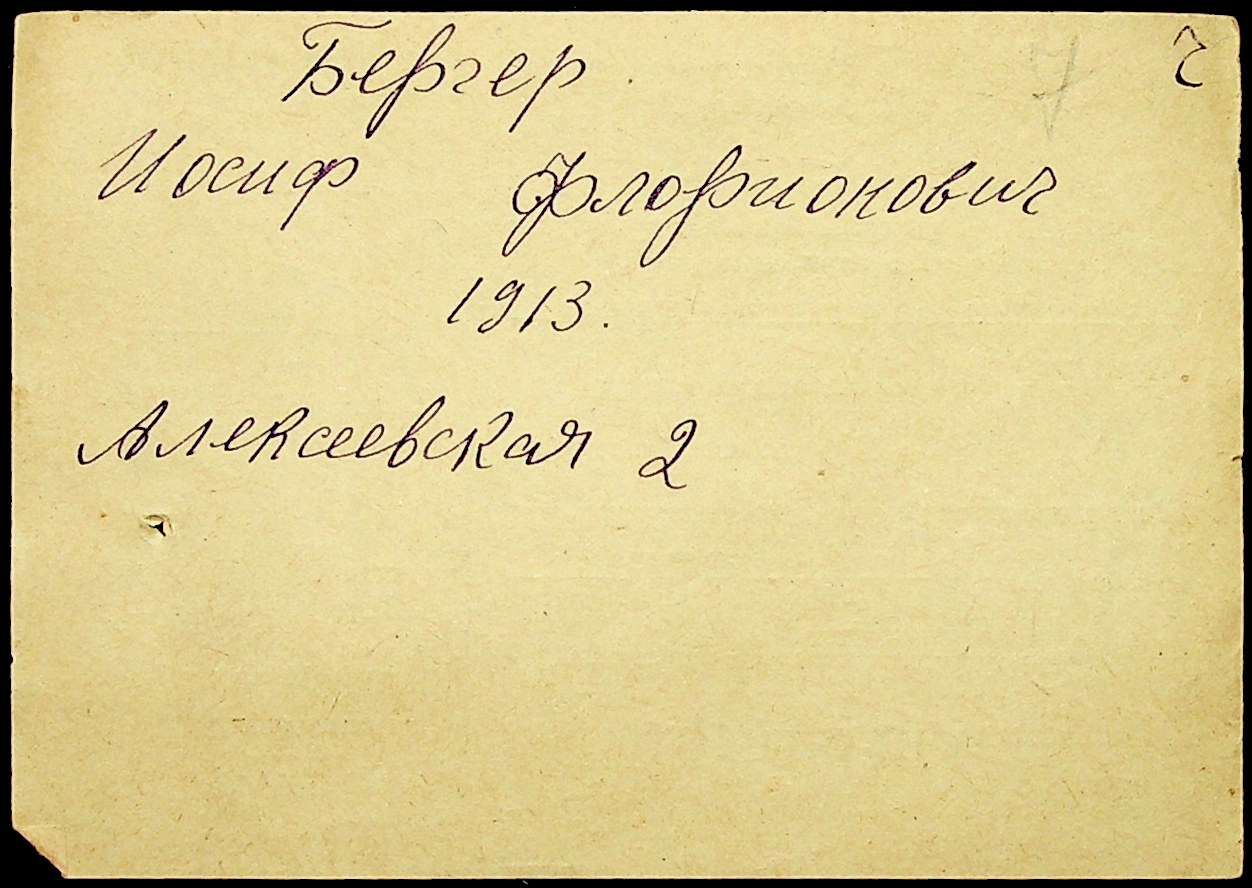 Бергер
Иосиф Флорионович
1913.
Алексеевская 2